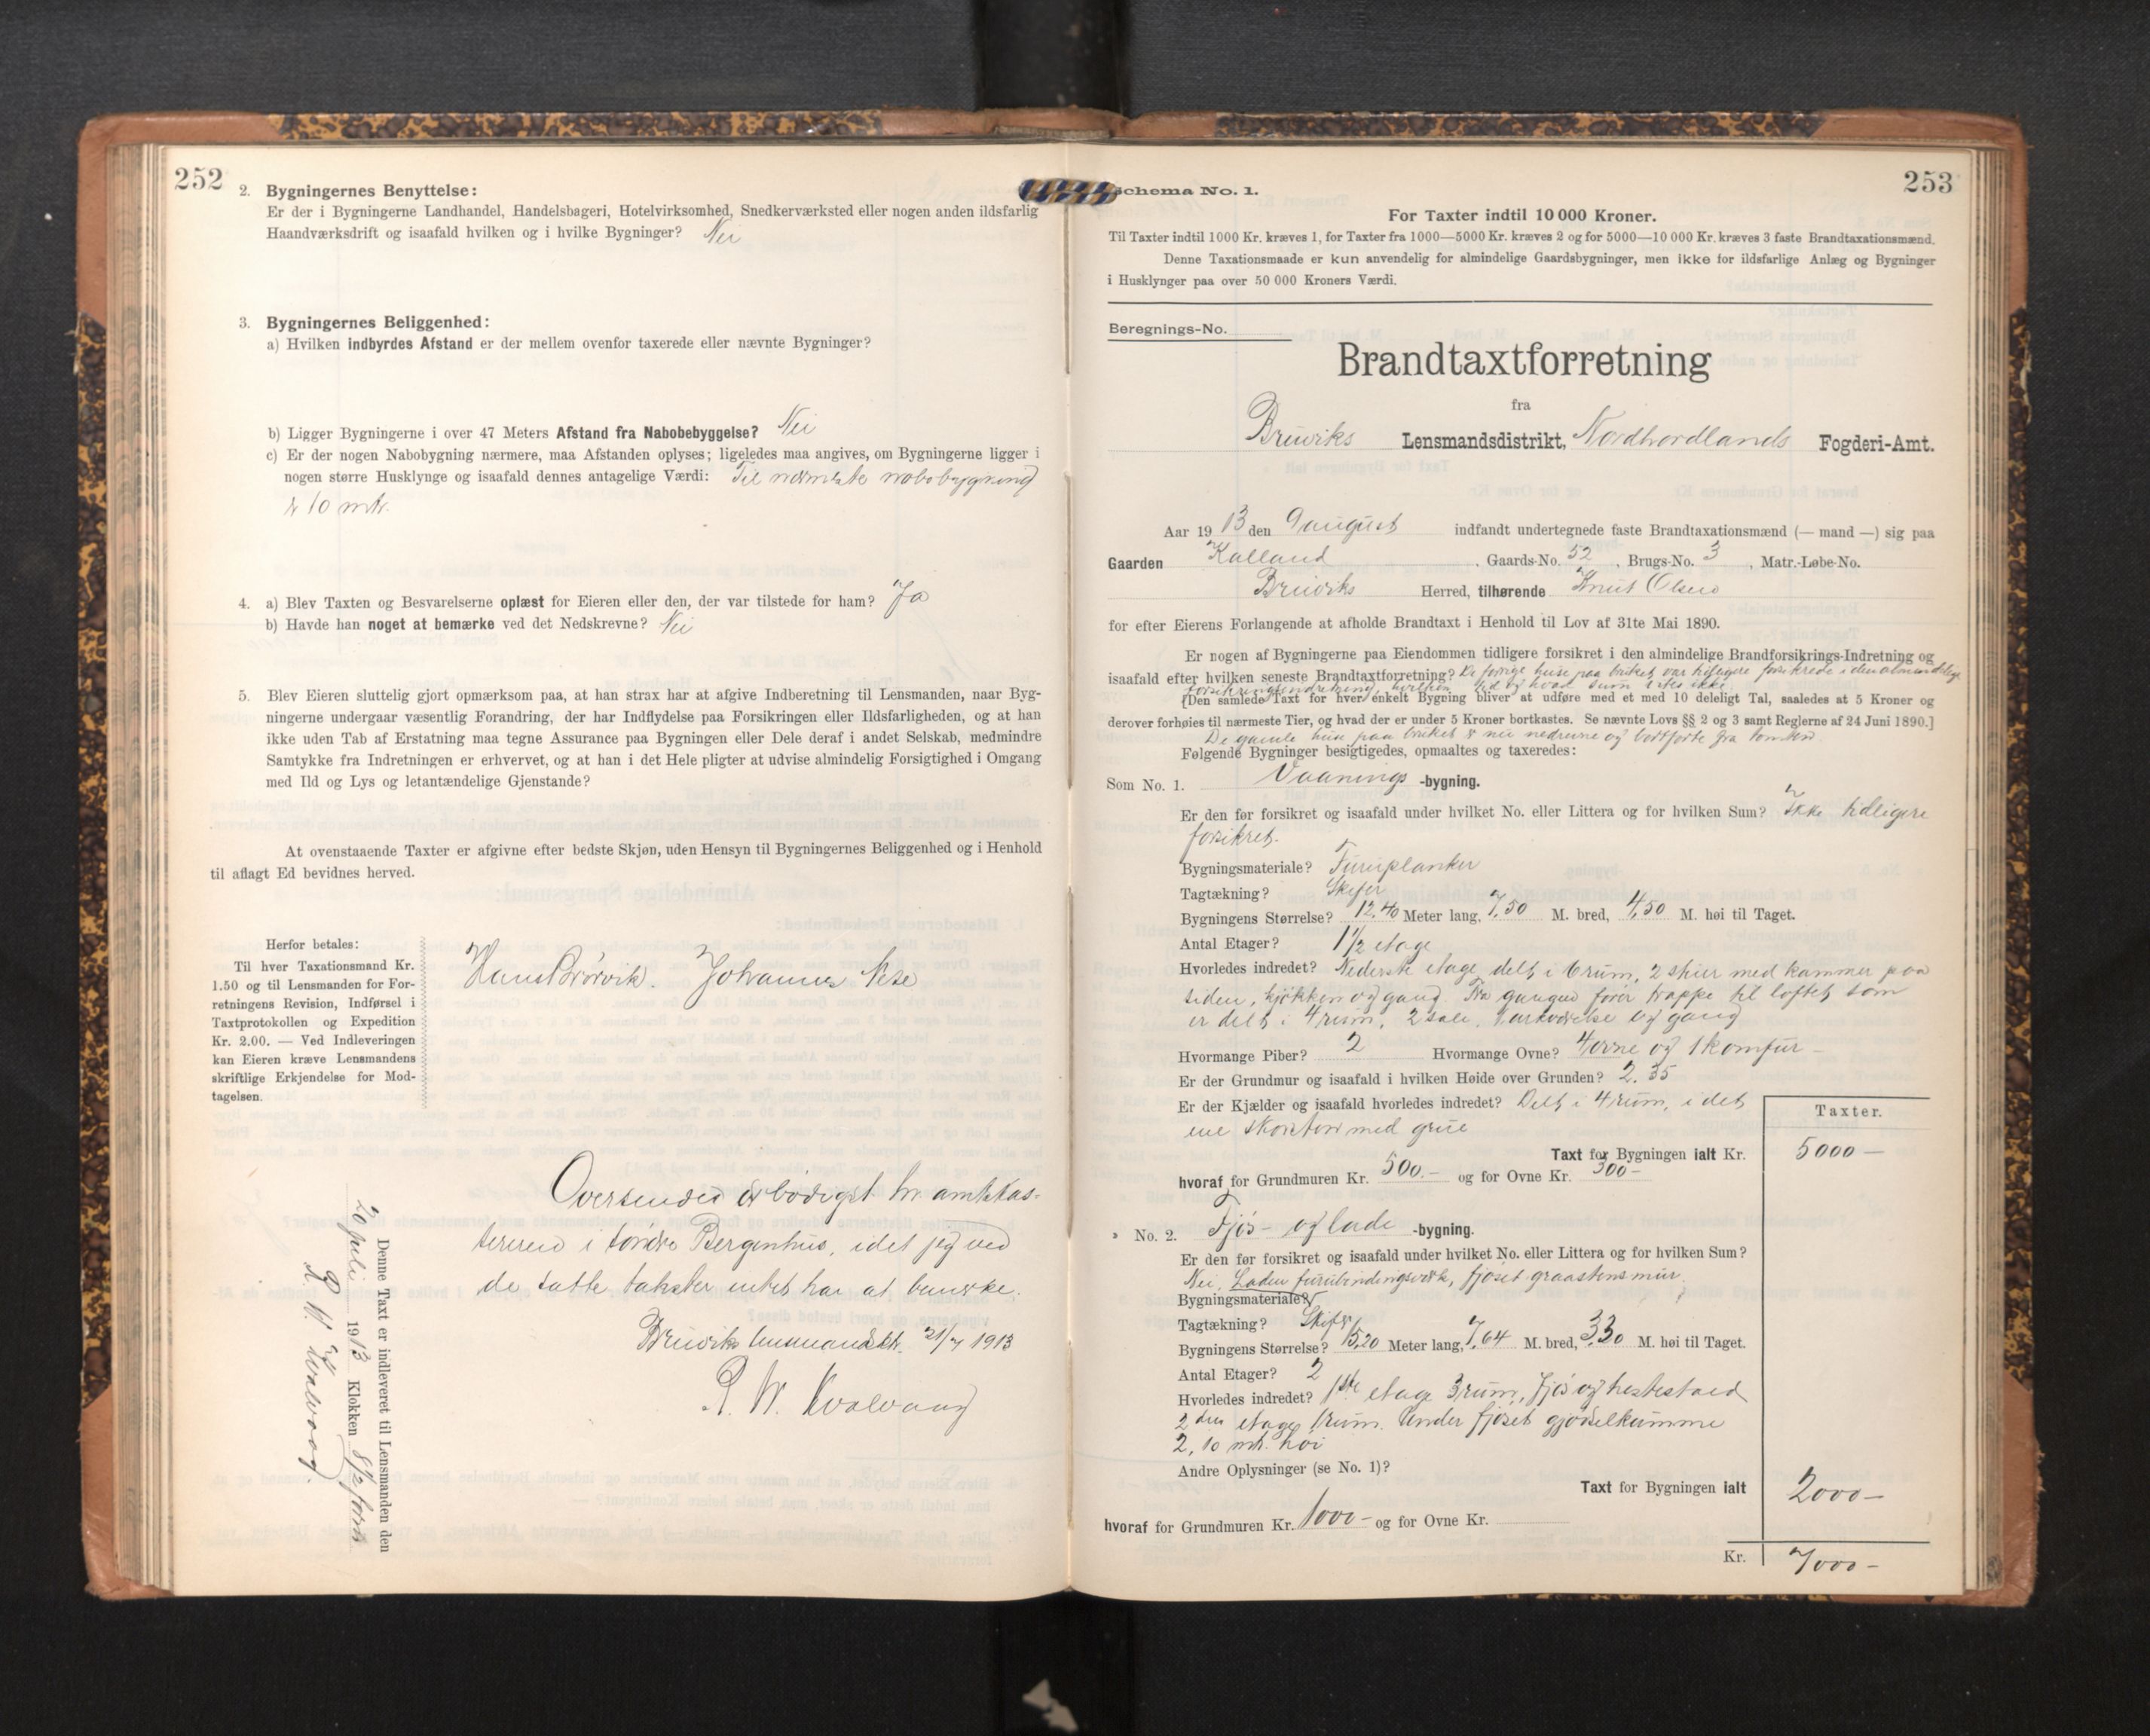 252
2. Bygningernes Benyttelse:
Er der i Bygningerne Landhandel, Handelsbageri, Hotelvirksomhed, Snedkerværksted eller nogen anden ildsfarlig
Haandværksdrift og isaafald hvilken og i hvilke Bygninger? Nei
3. Bygningernes Beliggenhed:
a) Hvilken indbyrdes Afstand er der mellem ovenfor taxerede eller nævnte Bygninger?
b) Ligger Bygningerne i over 47 Meters Afstand fra Nabobebyggelse? Nei
c) Er der nogen Nabobygning nærmere, maa Afstanden oplyses; ligeledes maa angives, om Bygningerne ligger i
nogen større Husklynge og isaafald dennes antagelige Værdi: Til nærmeste nabobygning
er 10 mtr.
4. a) Blev Taxten og Besvarelserne oplæst for Eieren eller den, der var tilstede for ham? Ja
b) Havde han noget at bemærke ved det Nedskrevne? Nei
5. Blev Eieren sluttelig gjort opmærksom paa, at han strax har at afgive Indberetning til Lensmanden, naar Byg-
ningerne undergaar væsentlig Forandring, der har Indflydelse paa Forsikringen eller Ildsfarligheden, og at han
ikke uden Tab af Erstatning maa tegne Assurance paa Bygningen eller Dele deraf i andet Selskab, medmindre
Samtykke fra Indretningen er erhvervet, og at han i det Hele pligter at udvise almindelig Forsigtighed i Omgang
med Ild og Lys og letantændelige Gjenstande?
At ovenstaaende Taxter er afgivne efter bedste Skjøn, uden Hensyn til Bygningernes Beliggenhed og i Henhold
til aflagt Ed bevidnes herved.
Herfor betales:
Til hver Taxationsmand Kr.
1.50 og til Lensmanden for For-
retningens Revision, Indførsel i
Taxtprotokollen og Expedition
Kr. 2.00. — Ved Indleveringen
kan Eieren kræve Lensmandens
skriftlige Erkjendelse for Mod-
tagelsen.
Hans Børvik. Johannes Nese
Oversendes ærbødigst hr. amtskas-
sereren i søndre Bergenhus, idet jeg ved
de satte takster intet har at bemerke.
Bruviks lensmandsktr. 21/7 1913
R. W. Kvalvaag
Denne Taxt er indleveret til Lensmanden den
20 juli 1913 Klokken 8 1/2 form
R. W. Kvalvaag
253
Schema No. 1.
For Taxter indtil 10 000 Kroner.
Til Taxter indtil 1000 Kr. kræves 1, for Taxter fra 1000—5000 Kr. kræves 2 og for 5000—10 000 Kr. kræves 3 faste Brandtaxationsmænd.
Denne Taxationsmaade er kun anvendelig for almindelige Gaardsbygninger, men ikke for ildsfarlige Anlæg og Bygninger
i Husklynger paa over 50 000 Kroners Værdi.
Beregnings-No.
Brandtaxtforretning
fra
Bruviks Lensmandsdistrikt, Nordhordlands Fogderi-Amt.
Aar 1913 den 9 august indfandt undertegnede faste Brandtaxationsmænd (— mand —) sig paa
Gaarden Kalland, Gaards-No. 52, Brugs-No. 3, Matr.-Løbe-No.
Bruviks Herred, tilhørende Knut Olsen
for efter Eierens Forlangende at afholde Brandtaxt i Henhold til Lov af 31te Mai 1890.
Er nogen af Bygningerne paa Eiendommen tidligere forsikret i den almindelige Brandforsikrings-Indretning og
isaafald efter hvilken seneste Brandtaxtforretning? De forrige huse paa bruket var tidligere forsikrede i den almindelige
forsikringsindretning, hvilken tid og hvad sum vites ikke
[Den samlede Taxt for hver enkelt Bygning bliver at udføre med et med 10 deleligt Tal, saaledes at 5 Kroner og
derover forhøies til nærmeste Tier, og hvad der er under 5 Kroner bortkastes. Se nævnte Lovs §§ 2 og 3 samt Reglerne af 24 Juni 1890.]
De gamle huse paa bruket er nu nedrevne og bortførte fra tomten.
Følgende Bygninger besigtigedes, opmaaltes og taxeredes:
Som No. 1. Vaanings -bygning.
Er den før forsikret og isaafald under hvilket No. eller Littera og for hvilken Sum? Ikke tidligere
forsikret.
Bygningsmateriale? Furuplanker
Tagtækning? Skifer
Bygningens Størrelse? 12,40 Meter lang, 7,50 M. bred, 4,50 M. høi til Taget.
Antal Etager? 1 1/2 etage
Hvorledes indredet? Nederste etage delt i 6 rum, 2 stuer med kammer paa
siden, kjøkken og gang. Fra gangen fører trappe til loftet som
er delt i 4 rum, 2 sale, 1 værelse og gang
Hvormange Piber? 2 Hvormange Ovne? 4 ovne og 1 komfur —
Er der Grundmur og isaafald i hvilken Høide over Grunden? 2.35
Er der Kjælder og isaafald hvorledes indredet? Delt i 4 rum, i det
ene skorsten med grue
Taxter.
Taxt for Bygningen ialt Kr. 5000 —
hvoraf for Grundmuren Kr. 500.— og for Ovne Kr. 300 —
» No. 2. Fjøs- og lade -bygning.
Er den før forsikret og isaafald under hvilket No. eller Littera og for hvilken Sum?
Nei. Laden furubindingsverk, fjøset graastensmur.
Bygningsmateriale?
Tagtækning? Skifer
Bygningens Størrelse? 15,20 Meter lang, 7,64 M. bred, 3,30 M. høi til Taget.
Antal Etager? 2
Hvorledes indredet? 1ste etage 3 rum, fjøs og hestestald
2den etage 1 rum. Under fjøset gjødselkumme
2,10 mtr. høi
Andre Oplysninger (se No. 1)?
Taxt for Bygningen ialt 2000 —
hvoraf for Grundmuren Kr. 1000 — og for Ovne Kr.
Kr. 7000 —